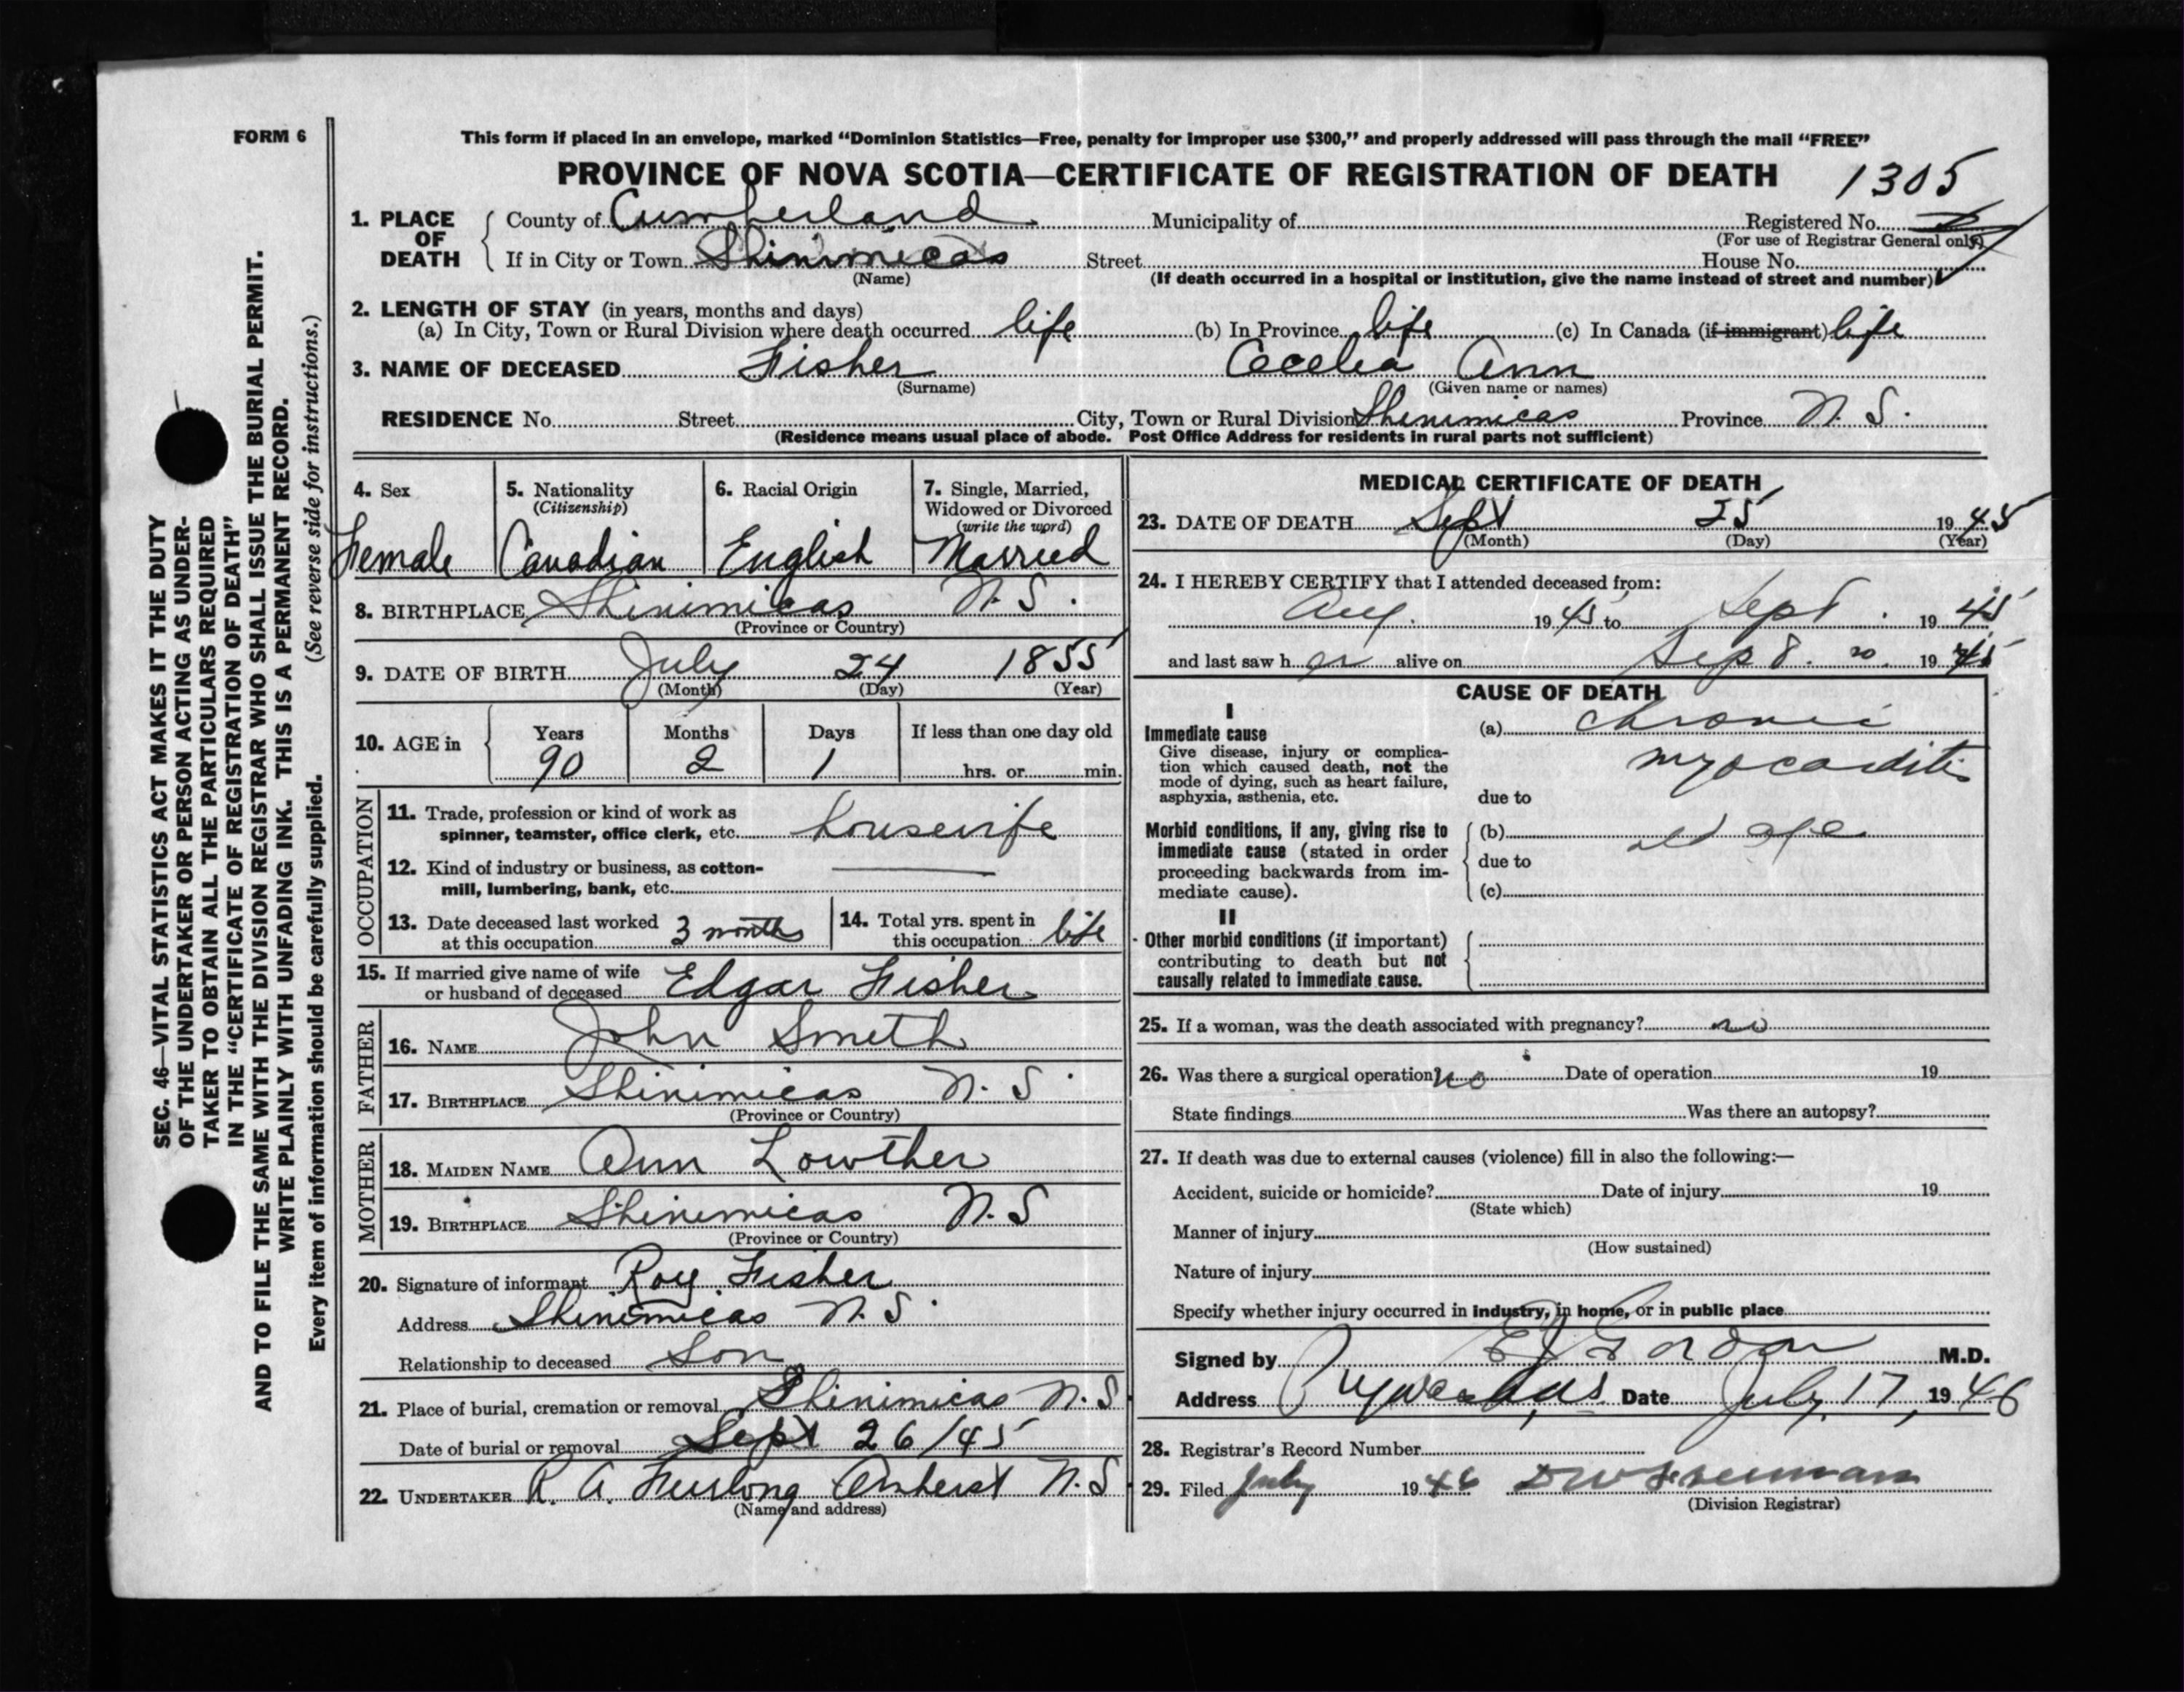 FORM 6
This form if placed in an envelope, marked "Dominion Statistics—Free, penalty for improper use $300," and properly addressed will pass through the mail "FREE"
PROVINCE OF NOVA SCOTIA—CERTIFICATE OF REGISTRATION OF DEATH 1305
1. PLACE OF DEATH County of Cumberland Municipality of Registered No.
(For use of Registrar General only)
If in City or Town Shinimicas Street House No.
(Name) (If death occurred in a hospital or institution, give the name instead of street and number)
2. LENGTH OF STAY (in years, months and days)
(a) In City, Town or Rural Division where death occurred life (b) In Province life (c) In Canada (if immigrant) life
3. NAME OF DECEASED Fisher Cecelia Ann
(Surname) (Given name or names)
RESIDENCE No. Street City, Town or Rural Division Shinimicas Province N. S.
(Residence means usual place of abode. Post Office Address for residents in rural parts not sufficient)
4. Sex Female
5. Nationality (Citizenship) Canadian
6. Racial Origin English
7. Single, Married, Widowed or Divorced (write the word) Married
8. BIRTHPLACE Shinimicas N. S.
(Province or Country)
9. DATE OF BIRTH July 24 1855
(Month) (Day) (Year)
10. AGE in Years Months Days If less than one day old
90 2 1 hrs. or min.
OCCUPATION
11. Trade, profession or kind of work as
spinner, teamster, office clerk, etc. housewife
12. Kind of industry or business, as cotton-
mill, lumbering, bank, etc.
13. Date deceased last worked
at this occupation 3 months
14. Total yrs. spent in
this occupation life
15. If married give name of wife
or husband of deceased Edgar Fisher
FATHER
16. NAME John Smith
17. BIRTHPLACE Shinimicas N. S.
(Province or Country)
MOTHER
18. MAIDEN NAME Ann Lowther
19. BIRTHPLACE Shinimicas N. S
(Province or Country)
20. Signature of informant Roy Fisher
Address Shinimicas N. S.
Relationship to deceased Son
21. Place of burial, cremation or removal Shinimicas N. S.
Date of burial or removal Sept 26/45
22. UNDERTAKER R. A. Furlong Amherst N. S.
(Name and address)
MEDICAL CERTIFICATE OF DEATH
23. DATE OF DEATH Sept 25 1945
(Month) (Day) (Year)
24. I HEREBY CERTIFY that I attended deceased from:
Aug. 1945 to Sept. 1945
and last saw her alive on Sep 8. 1945
CAUSE OF DEATH
I
Immediate cause
Give disease, injury or complica-
tion which caused death, not the
mode of dying, such as heart failure,
asphyxia, asthenia, etc.
(a) chronic
myocarditis
due to
Morbid conditions, if any, giving rise to
immediate cause (stated in order
proceeding backwards from im-
mediate cause).
(b) old age
due to
(c)
II
Other morbid conditions (if important)
contributing to death but not
causally related to immediate cause.
25. If a woman, was the death associated with pregnancy? no
26. Was there a surgical operation no Date of operation 19
State findings Was there an autopsy?
27. If death was due to external causes (violence) fill in also the following:—
Accident, suicide or homicide? Date of injury 19
(State which)
Manner of injury
(How sustained)
Nature of injury
Specify whether injury occurred in industry, in home, or in public place
Signed by E J Gordon M.D.
Address Pugwash, N.S. Date July, 17, 1946
28. Registrar's Record Number
29. Filed July 1946
(Division Registrar)
SEC. 46—VITAL STATISTICS ACT MAKES IT THE DUTY
OF THE UNDERTAKER OR PERSON ACTING AS UNDER-
TAKER TO OBTAIN ALL THE PARTICULARS REQUIRED
IN THE "CERTIFICATE OF REGISTRATION OF DEATH"
AND TO FILE THE SAME WITH THE DIVISION REGISTRAR WHO SHALL ISSUE THE BURIAL PERMIT.
WRITE PLAINLY WITH UNFADING INK. THIS IS A PERMANENT RECORD.
Every item of information should be carefully supplied. (See reverse side for instructions.)